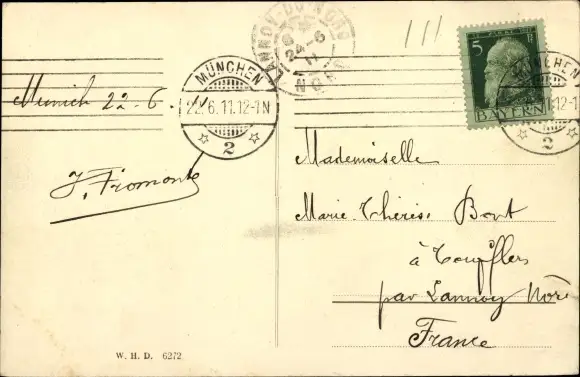 LANNOY-DU-NORD
24-6
11
NORD
MÜNCHEN
22.6.11.12-1N
2
5
BAYERN
MÜNCHEN
2
Munich 22-6.
J. Fromont
Mademoiselle
Marie-Thérèse Bont
à Toufflers
par Lannoy Nord
France
W. H. D. 6272